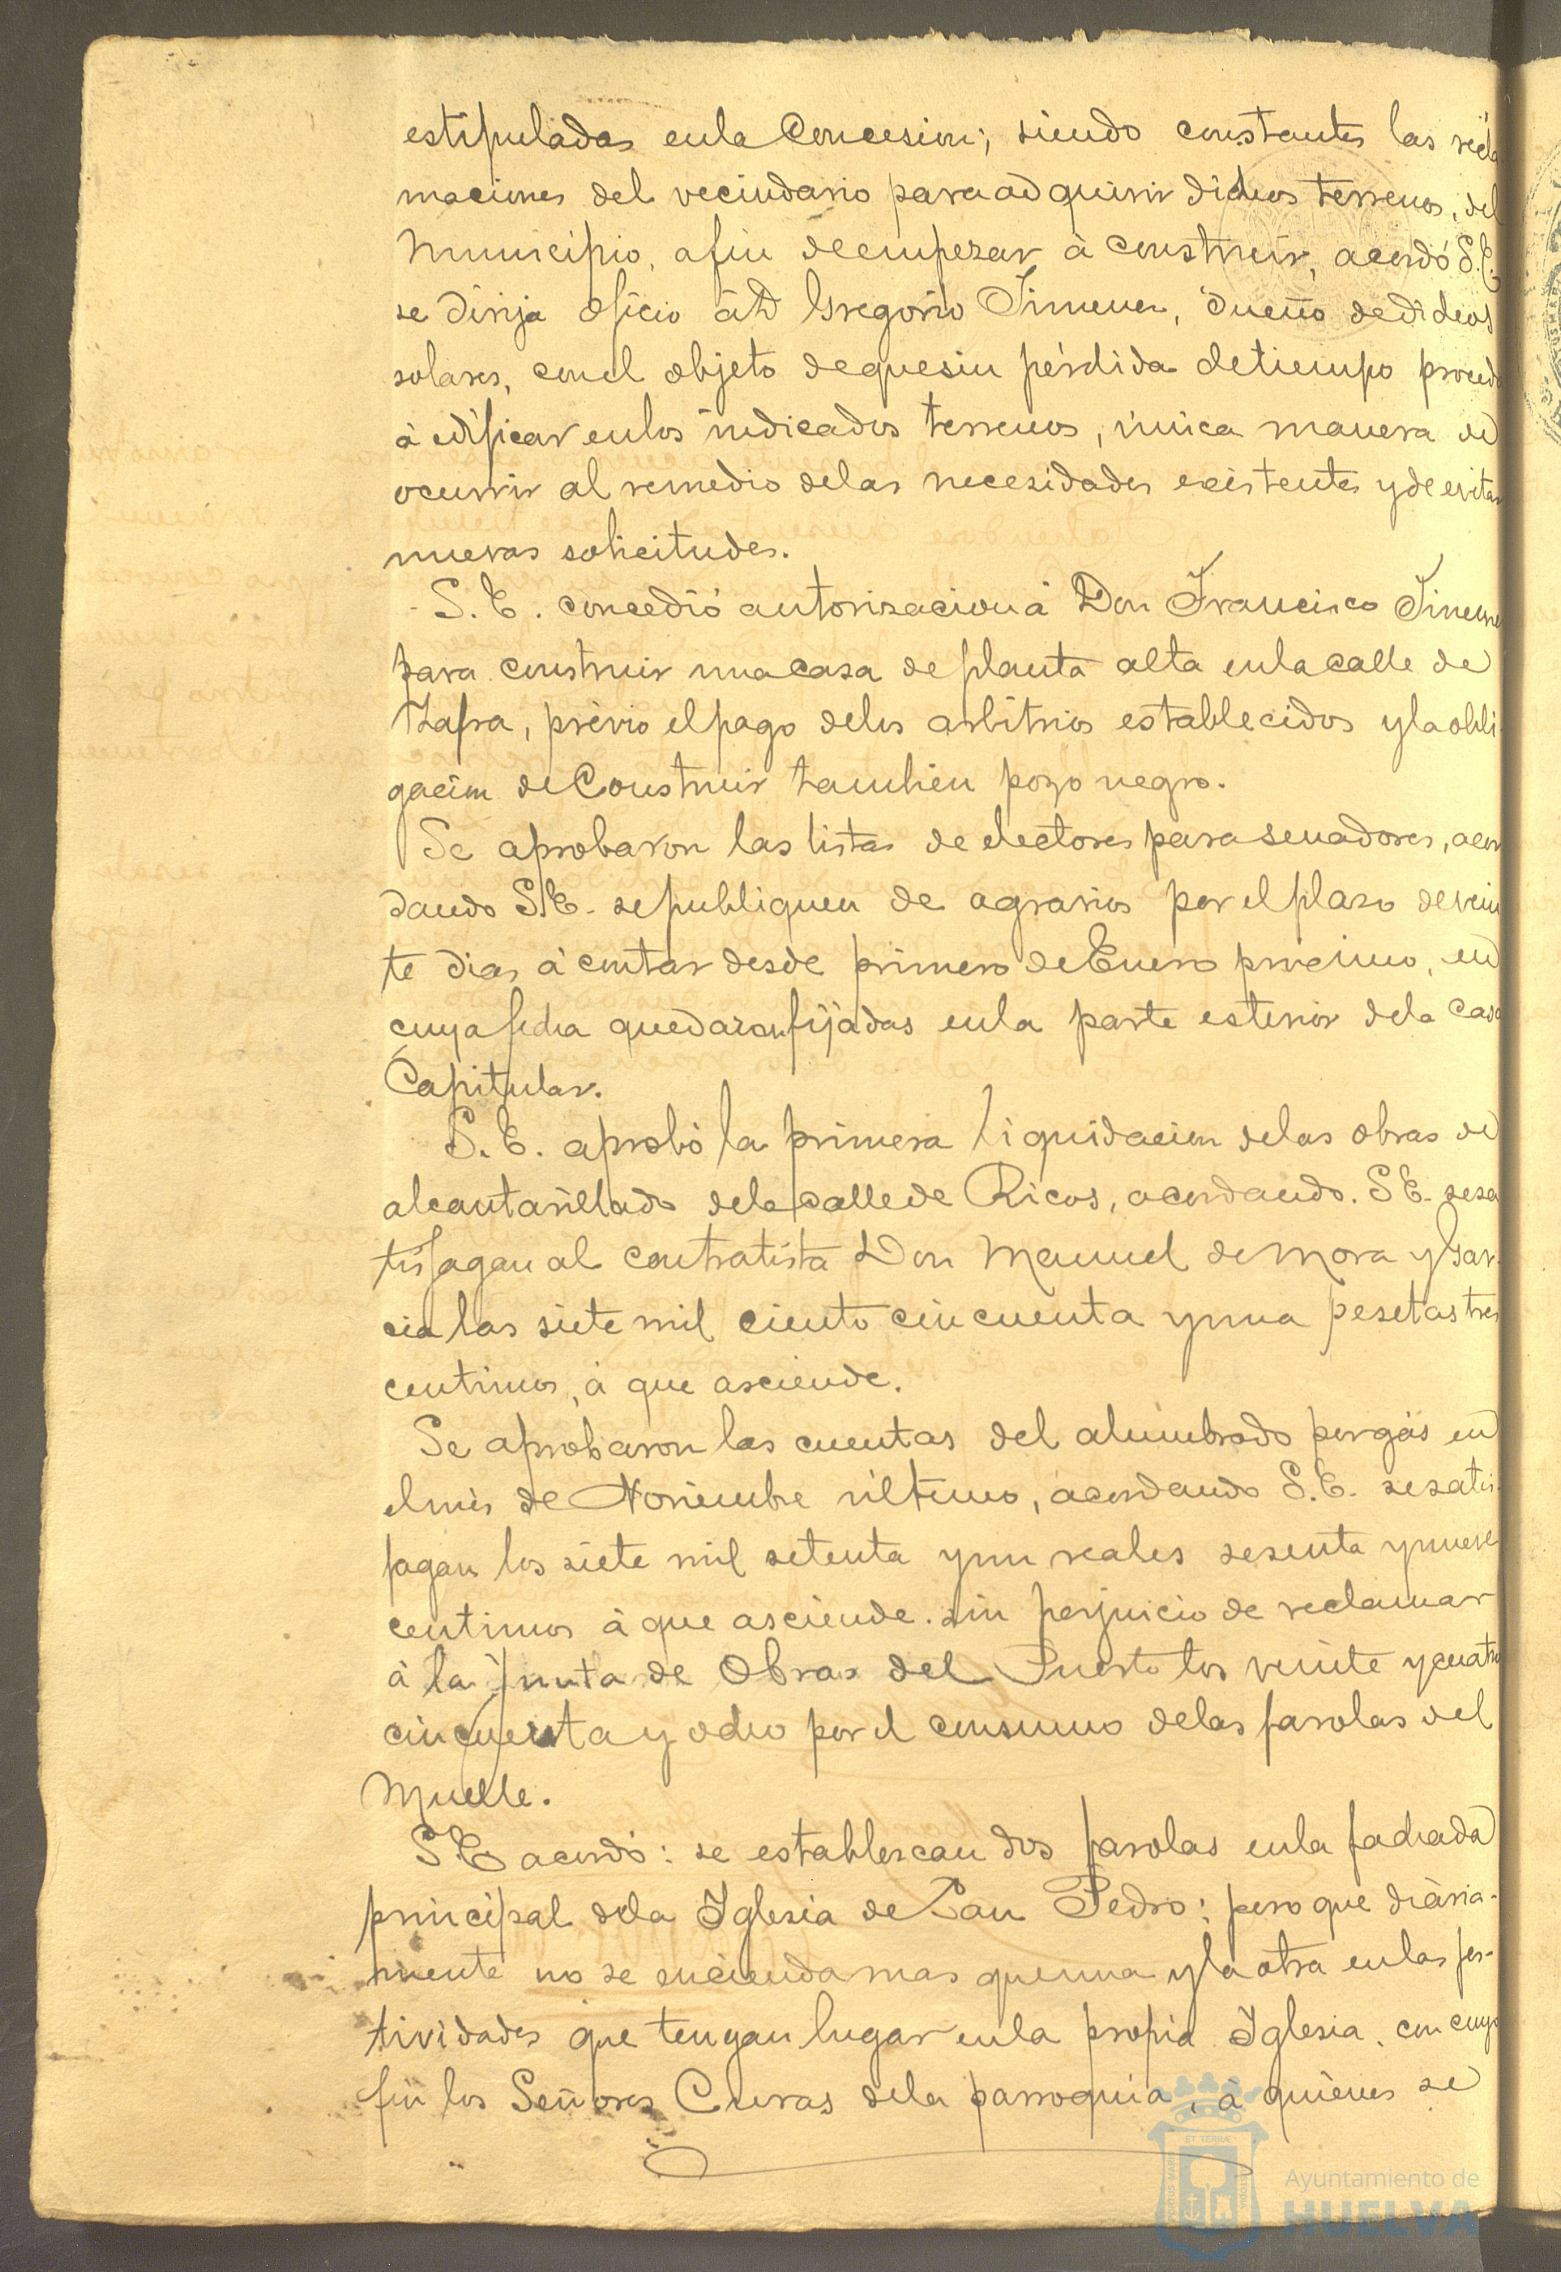 estipuladas en la Concesion; siendo constantes las recla
maciones del vecindario para adquirir dichos terrenos, del
Municipio, a fin de empezar à construir, acordó S.E.
se dirija oficio à D Gregorio Jimenez, dueño de dichos
solares, con el objeto de que sin pérdida de tiempo proceda
à edificar en los indicados terrenos, única manera de
ocurrir al remedio de las necesidades existentes y de evitar
nuevas solicitudes.
S. E. concedió autorizacion à Don Francisco Jimene
para construir una casa de planta alta en la calle de
Zafra, prévio el pago de los arbitrios establecidos y la obli-
gacion de Construir tambien pozo negro.
Se aprobaron las listas de electores para senadores, acor
dando S.E. se publiquen de agravios por el plazo de vein
te dias à contar desde primero de Enero procsimo, en
cuya fecha quedaran fijadas en la parte esterior de la Casa
Capitular.
S. E. aprobó la primera liquidacion de las obras de
alcantarillado de la calle de Ricos, acordando S E. se sa
tisfagan al contratista Don Manuel de Mora y Gar-
cia las siete mil ciento cincuenta y una pesetas tres
centimos, à que asciende.
Se aprobaron las cuentas del alumbrado por gás en
el mes de Noviembre último, acordando S. E. se satis-
fagan los siete mil setenta y un reales sesenta y nueve
centimos à que asciende. sin perjuicio de reclamar
à la Junta de Obras del Puerto los veinte y cuatro
cincuenta y ocho por el consumo de las farolas del
Muelle.
S.E acordó: se establezcan dos farolas en la fachada
principal de la Iglesia de San Pedro; pero que diària-
mente no se encienda mas que una y la otra en las fes-
tividades que tengan lugar en la propia Iglesia, con cuyo
fin los Señores Curas de la parroquia, à quienes se
Ayuntamiento de
HUELVA